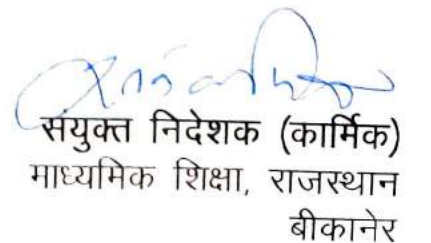 सयुक्त निदेशक (कार्मिक)
माध्यमिक शिक्षा, राजस्थान
बीकानेर